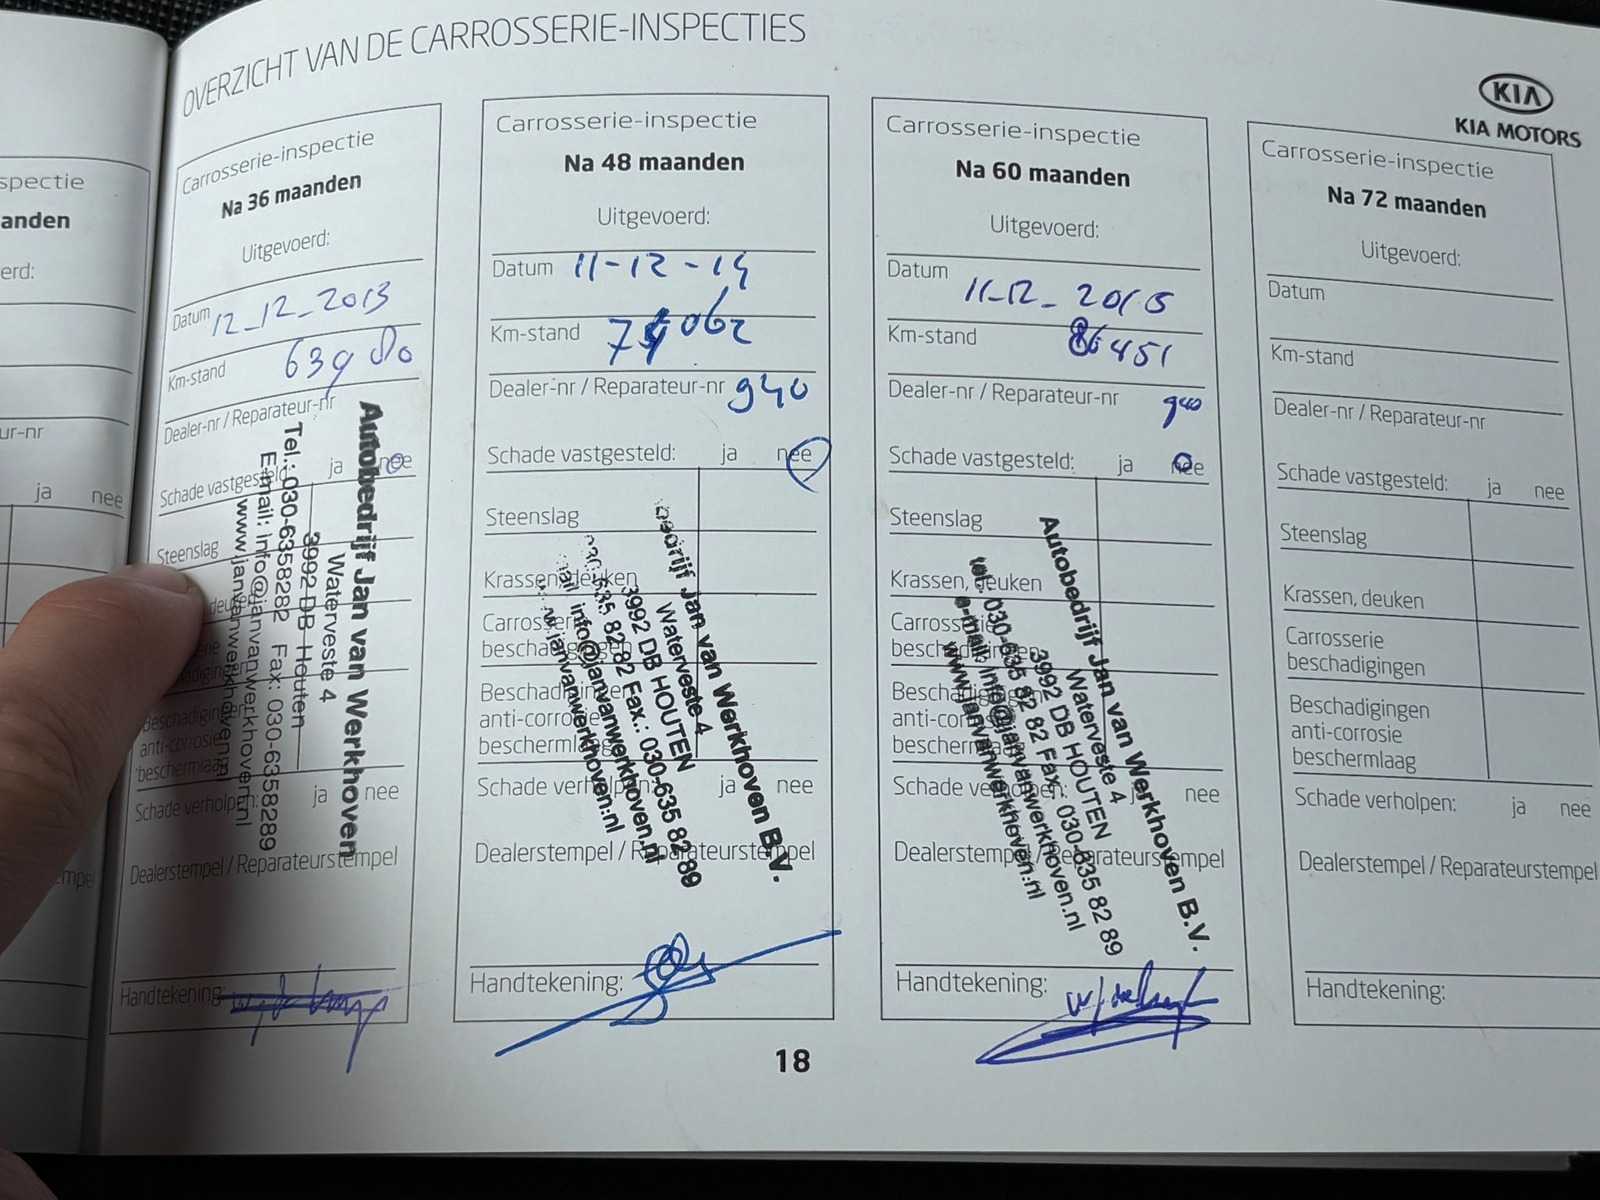 OVERZICHT VAN DE CARROSSERIE-INSPECTIES
KIA
KIA MOTORS
spectie
anden
erd:
ur-nr
ja nee
empel
Carrosserie-inspectie
Na 36 maanden
Uitgevoerd:
Datum 12_12_2013
Km-stand 639
Dealer-nr / Reparateur-nr
Schade vastgesteld: ja nee
Steenslag
Beschadigingen
anti-corrosie
beschermlaag
Schade verholpen: ja nee
Dealerstempel / Reparateurstempel
Handtekening:
Autobedrijf Jan van Werkhoven
Waterveste 4
3992 DB Houten
Tel.: 030-6358282 Fax: 030-6358289
E-mail: info@janvanwerkhoven.nl
www.janvanwerkhoven.nl
Carrosserie-inspectie
Na 48 maanden
Uitgevoerd:
Datum 11-12-14
Km-stand 062
Dealer-nr / Reparateur-nr 940
Schade vastgesteld: ja nee
Steenslag
Krassen, deuken
Carrosserie
beschadigingen
Beschadigingen
anti-corrosie
beschermlaag
Schade verholpen: ja nee
Dealerstempel / Reparateurstempel
Handtekening:
Jan van Werkhoven B.V.
Waterveste 4
3992 DB HOUTEN
030-635 82 82 Fax.: 030-635 82 89
info@janvanwerkhoven.nl
janvanwerkhoven.nl
Carrosserie-inspectie
Na 60 maanden
Uitgevoerd:
Datum 11-12-2015
Km-stand 86451
Dealer-nr / Reparateur-nr 940
Schade vastgesteld: ja nee
Steenslag
Krassen, deuken
Carrosserie
beschadigingen
Beschadigingen
anti-corrosie
beschermlaag
Schade verholpen: ja nee
Dealerstempel / Reparateurstempel
Handtekening:
Autobedrijf Jan van Werkhoven B.V.
Waterveste 4
3992 DB HOUTEN
tel. 030-635 82 82 Fax: 030-635 82 89
e-mail: info@janvanwerkhoven.nl
www.janvanwerkhoven.nl
Carrosserie-inspectie
Na 72 maanden
Uitgevoerd:
Datum
Km-stand
Dealer-nr / Reparateur-nr
Schade vastgesteld: ja nee
Steenslag
Krassen, deuken
Carrosserie
beschadigingen
Beschadigingen
anti-corrosie
beschermlaag
Schade verholpen: ja nee
Dealerstempel / Reparateurstempel
Handtekening:
18